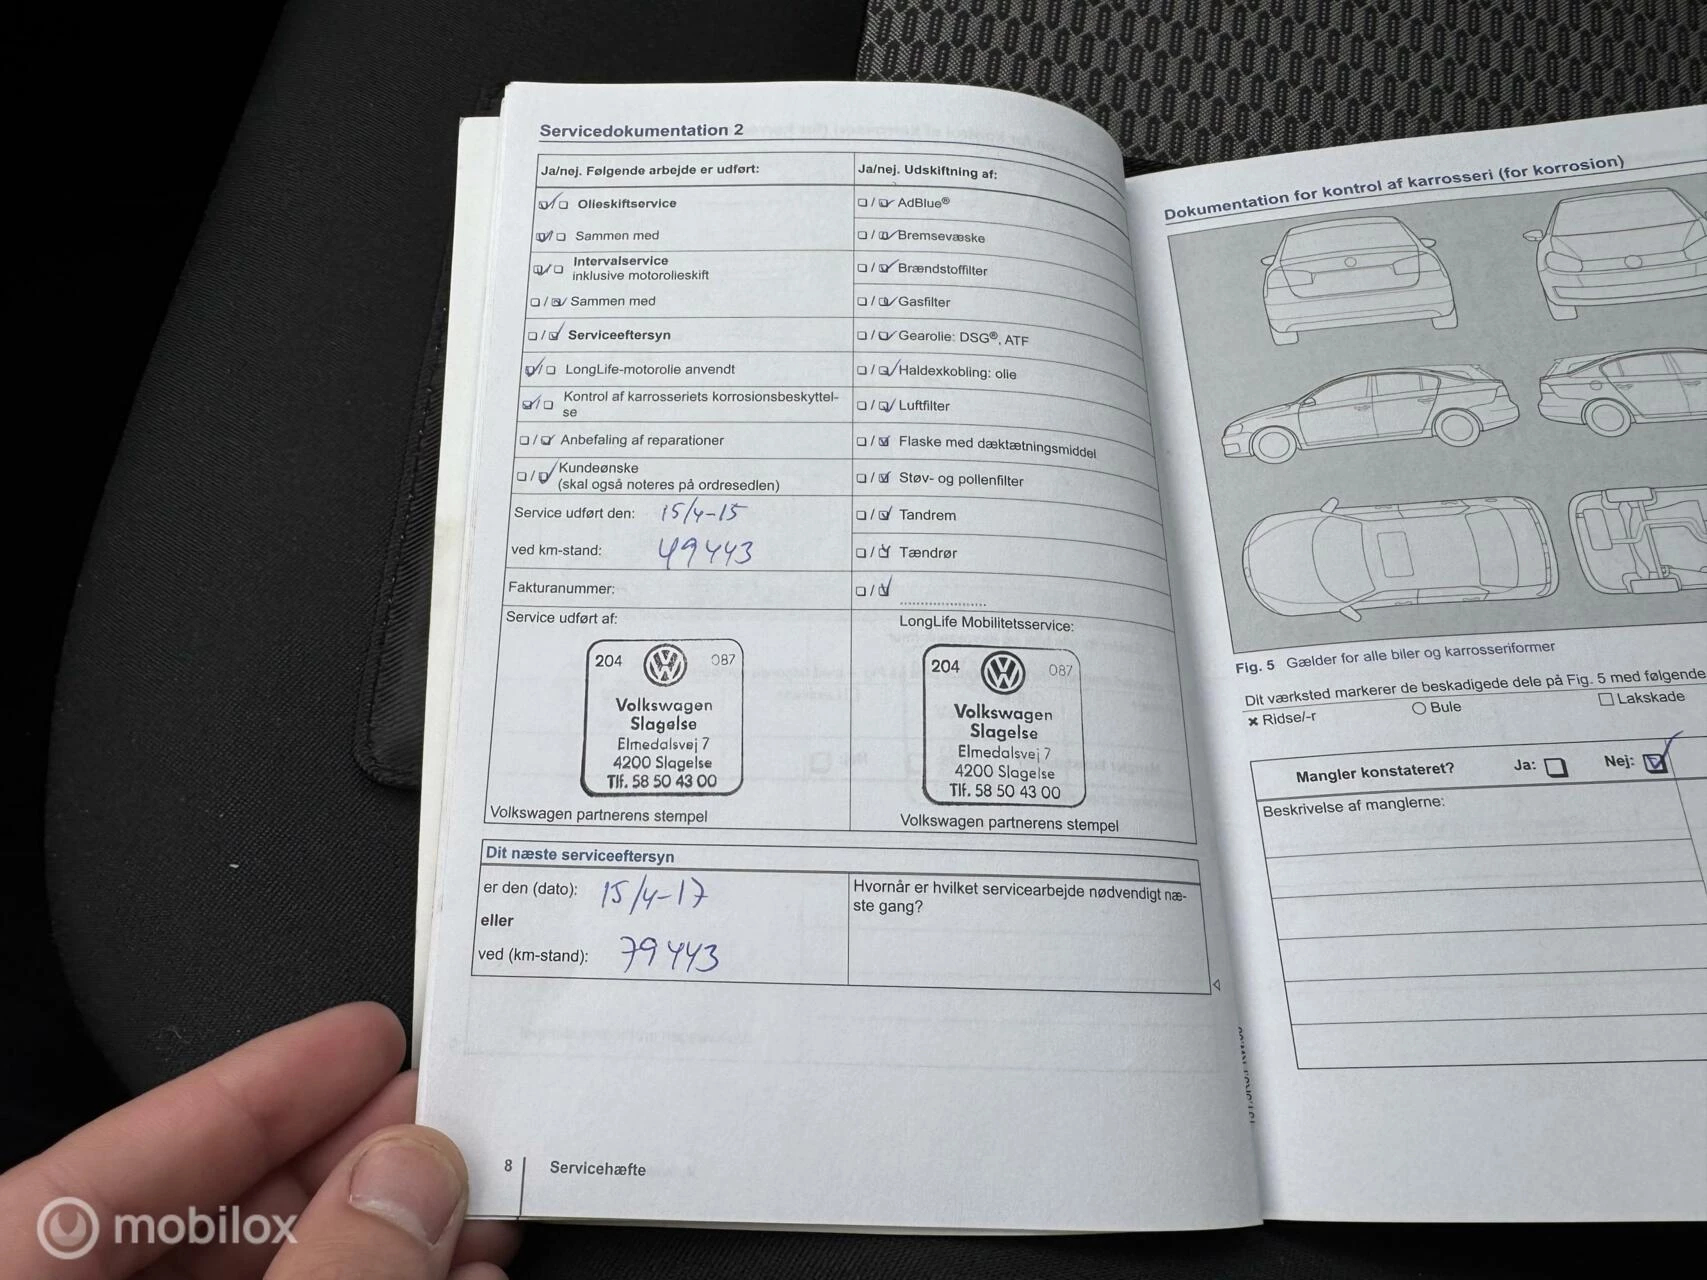 Servicedokumentation 2
Ja/nej. Følgende arbejde er udført:
Olieskiftservice
Sammen med
Intervalservice
inklusive motorolieskift
/ Sammen med
/ Serviceeftersyn
/ LongLife-motorolie anvendt
/ Kontrol af karrosseriets korrosionsbeskyttel-
se
/ Anbefaling af reparationer
/ Kundeønske
(skal også noteres på ordresedlen)
Service udført den: 15/4-15
ved km-stand: 49443
Fakturanummer:
Service udført af:
204 087
Volkswagen
Slagelse
Elmedalsvej 7
4200 Slagelse
Tlf. 58 50 43 00
Volkswagen partnerens stempel
Ja/nej. Udskiftning af:
/ AdBlue®
/ Bremsevæske
/ Brændstoffilter
/ Gasfilter
/ Gearolie: DSG®, ATF
/ Haldexkobling: olie
/ Luftfilter
/ Flaske med dæktætningsmiddel
/ Støv- og pollenfilter
/ Tandrem
/ Tændrør
/ ......................
LongLife Mobilitetsservice:
204 087
Volkswagen
Slagelse
Elmedalsvej 7
4200 Slagelse
Tlf. 58 50 43 00
Volkswagen partnerens stempel
Dit næste serviceeftersyn
er den (dato): 15/4-17
eller
ved (km-stand): 79443
Hvornår er hvilket servicearbejde nødvendigt næ-
ste gang?
8 Servicehæfte
Dokumentation for kontrol af karrosseri (for korrosion)
Fig. 5 Gælder for alle biler og karrosseriformer
Dit værksted markerer de beskadigede dele på Fig. 5 med følgende
Ridse/-r Bule Lakskade
Mangler konstateret? Ja: Nej:
Beskrivelse af manglerne:
mobilox